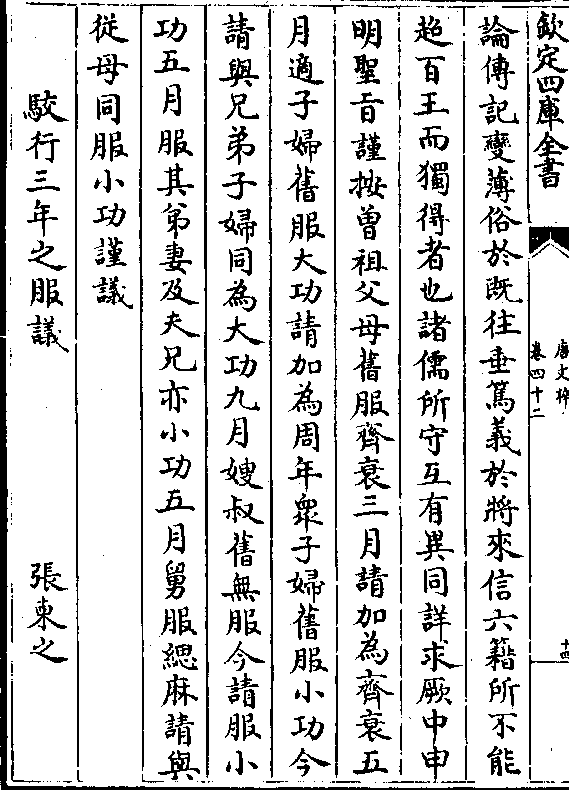 欽定四庫全書
唐文粹
卷四十二
十四
論傳記變薄俗於既往垂篤義於將來信六籍所不能
超百王而獨得者也諸儒所守互有異同詳求厥中申
明聖旨謹按曾祖父母舊服齊衰三月請加為齊衰五
月適子婦舊服大功請加為周年衆子婦舊服小功今
請與兄弟子婦同為大功九月嫂叔舊無服今請服小
功五月服其弟妻及夫兄亦小功五月舅服緦麻請與
從母同服小功謹議
駮行三年之服議
張柬之